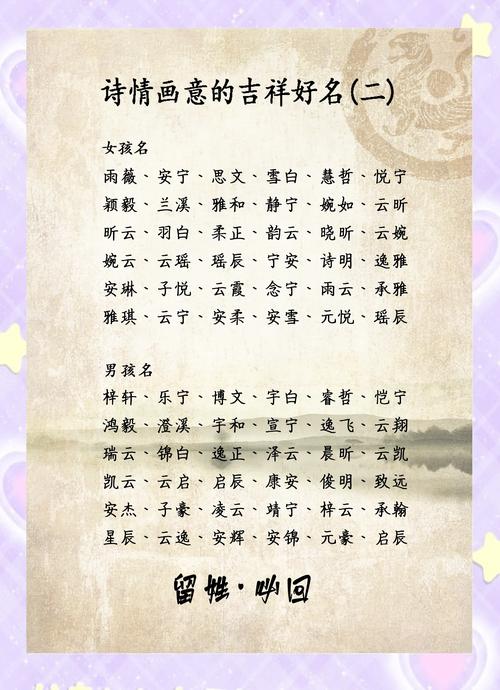 诗情画意的吉祥好名(二)
女孩名
雨薇、安宁、思文、雪白、慧哲、悦宁
颖毅、兰溪、雅和、静宁、婉如、云昕
昕云、羽白、柔正、韵云、晓昕、云婉
婉云、云瑶、瑶辰、宁安、诗明、逸雅
安琳、子悦、云霞、念宁、雨云、承雅
雅琪、云宁、安柔、安雪、元悦、瑶辰
男孩名
梓轩、乐宁、博文、宇白、睿哲、恺宁
鸿毅、澄溪、宇和、宣宁、逸飞、云翔
瑞云、锦白、逸正、泽云、晨昕、云凯
凯云、云启、启辰、康安、俊明、致远
安杰、子豪、凌云、靖宁、梓云、承翰
星辰、云逸、安辉、安锦、元豪、启辰
留姓·必回